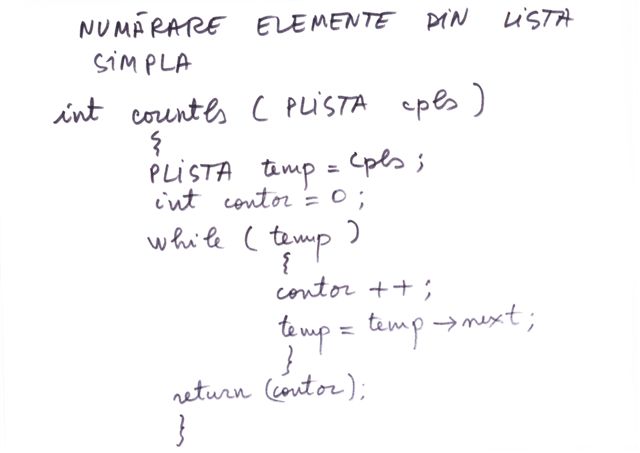 NUMĂRARE ELEMENTE DIN LISTA
SIMPLA
int countls ( PLISTA cpls )
{
PLISTA temp = cpls ;
int contor = 0 ;
while ( temp )
{
contor ++ ;
temp = temp → next ;
}
return (contor) ;
}